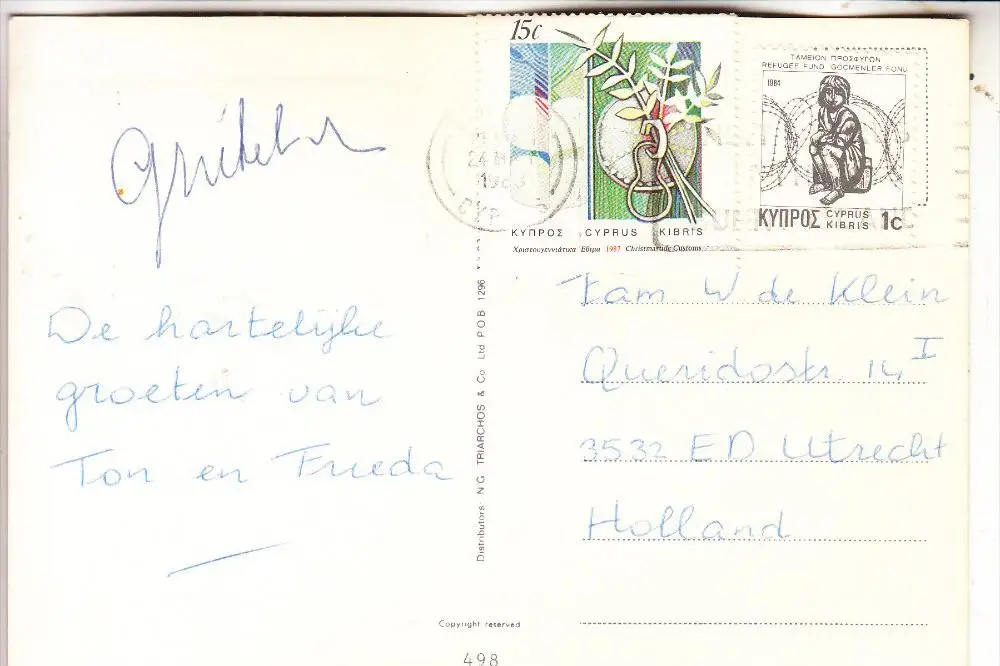 15c
ΚΥΠΡΟΣ CYPRUS KIBRIS
Χριστουγεννιάτικα Έθιμα 1987 Christmastide Customs
ΤΑΜΕΙΟΝ ΠΡΟΣΦΥΓΩΝ
REFUGEE FUND GÖÇMENLER FONU
1984
ΚΥΠΡΟΣ CYPRUS
KIBRIS 1c
De hartelijke
groeten van
Ton en Frieda
Distributors: N.G. TRIARCHOS & Co. Ltd P.O.B. 1296
Fam W de Klein
Queridostr 14 I
3532 ED Utrecht
Holland
Copyright reserved
498